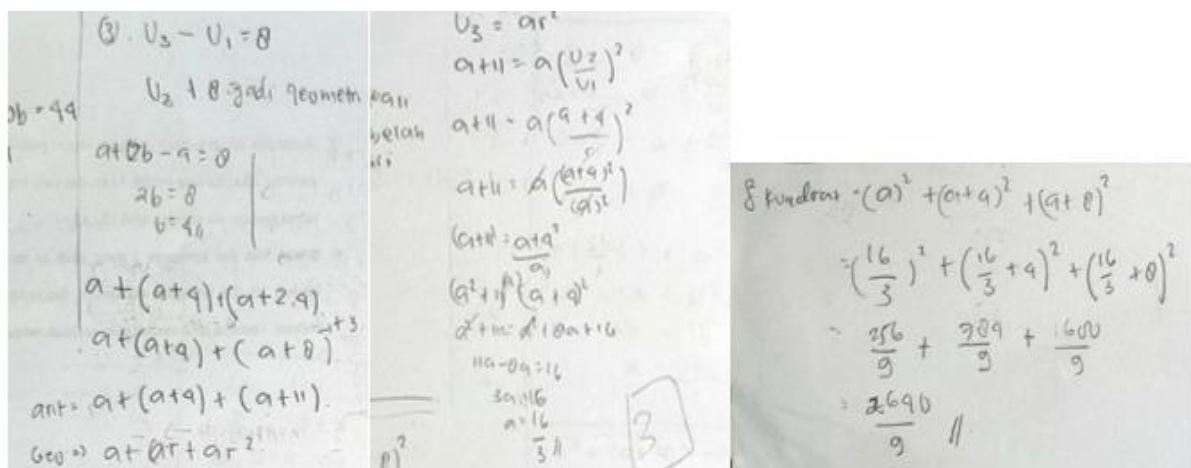 ③. U₃ - U₁ = 8
U₂ + 8 jadi geometri
b = 44
a+2b-a=8
2b=8
b=4//
a+(a+4)+(a+2.4)
a+(a+4)+(a+8)+3
a+(a+4)+(a+11).
Geo => a+ar+ar²
U₃ = ar²
a+11 = a(U₂/U₁)²
belah
a+11 = a(a+4/)²
a+11 = a((a+4)²/(a)²)
(a+11) = a+4²/a
(a²+11a) (a+4)²
a²+11a = a²+8a+16
11a-8a=16
3a=16
a=16/3//
3
kuadrat = (a)² + (a+4)² + (a+8)²
= (16/3)² + (16/3 + 4)² + (16/3 + 8)²
= 256/9 + 784/9 + 1600/9
= 2640/9 //